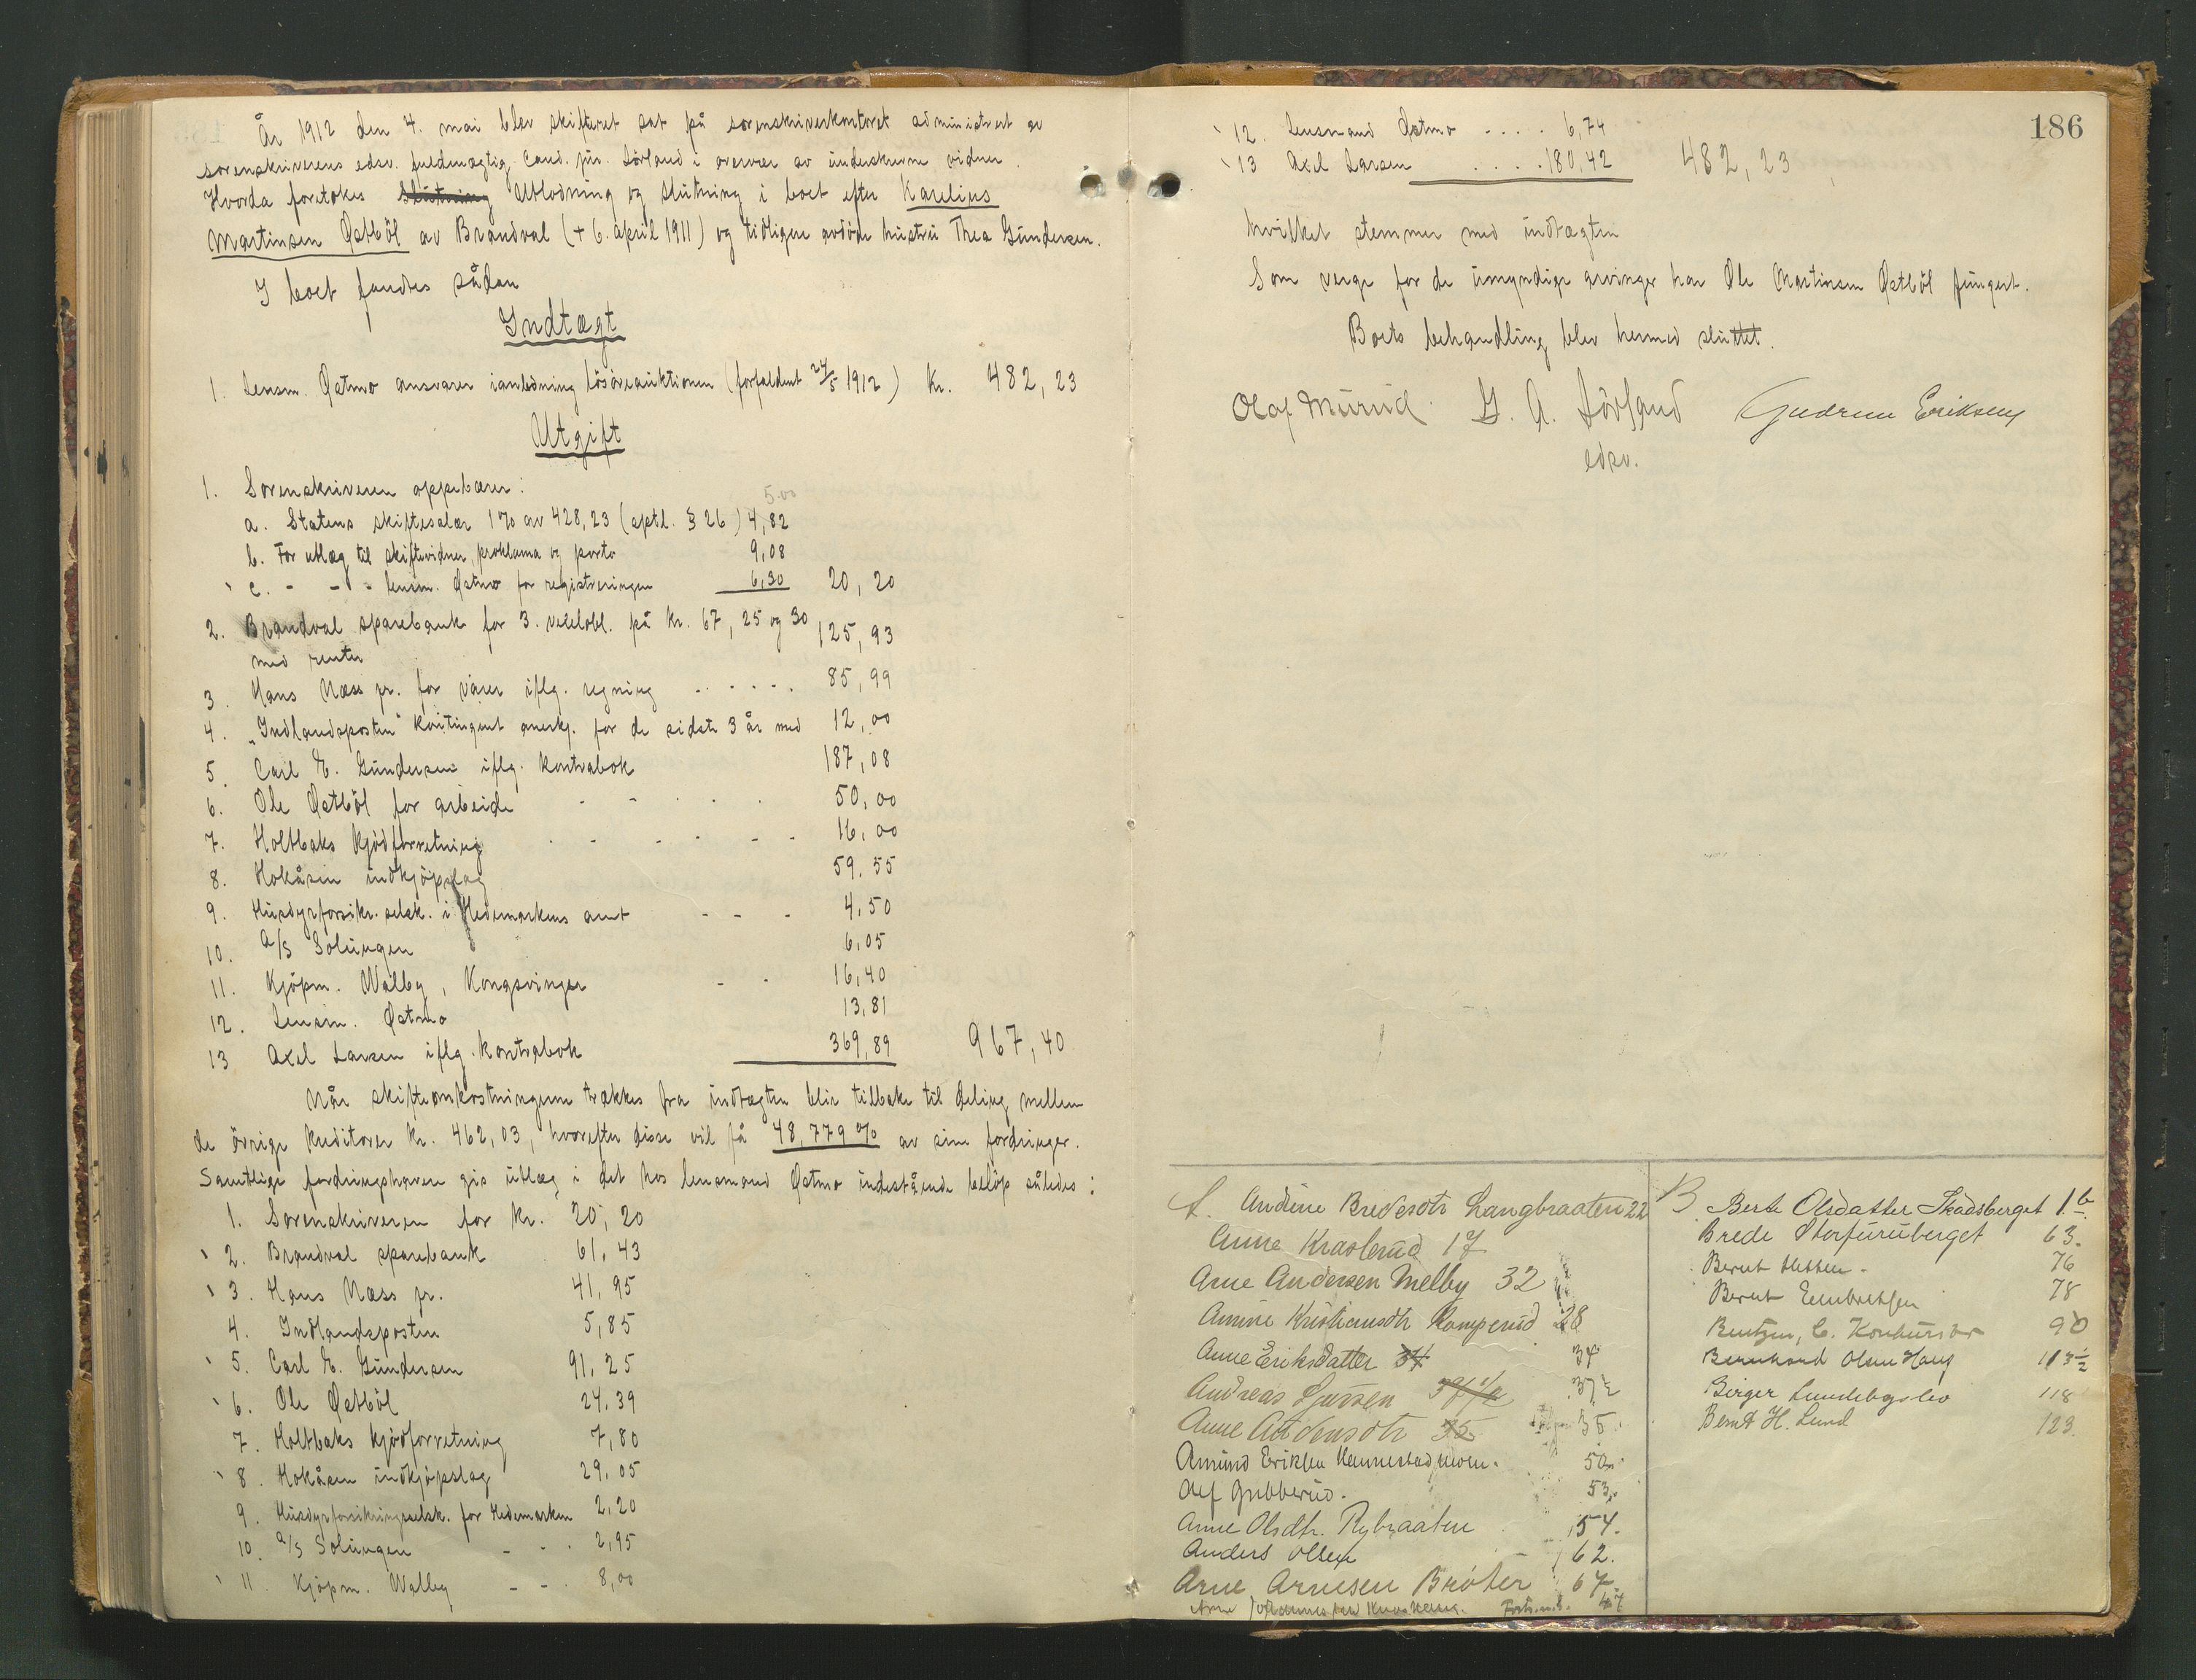 År 1912 den 4. mai blev skifteret sat på sorenskriverkontoret administrert av
sorenskriverens edsv. fuldmægtig cand. jur. Sörland i overvær av underskrevne vidner.
Hvorda foretokes Slutning Utlodning og Slutning i boet efter Karelius
Martinsen Østböl av Brandval (+ 6. april 1911) og tidligere avdöde hustru Thea Gundersen.
I boet fandtes sådan
Indtægt
1. Lensm. Østmo ansvarer i anledning lösöreauktionen (forfaldent 24/5 1912) Kr. 482,23
Utgift
1. Sorenskriveren oppebærer:
5.00
a. Statens skiftesalær 1% av 428,23 (sptl. § 26) 4,82
b. For utlæg til skiftevidner, proklama og porto 9,08
c. - - - lensm. Østmo for registreringen 6,30 20,20
2. Brandval sparebank for 3. vekselobl. på kr. 67, 25 og 30 125,93
med renter
3. Hans Næss jr. for varer iflg. regning 85,99
4. "Indlandsposten" kontingent anerkj. for de sidste 3 år med 12,00
5. Carl E. Gundersen iflg. kontrabok 187,08
6. Ole Østböl for arbeide 50,00
7. Holtbaks kjödforretning 16,00
8. Hokåsen indkjöpslag 59.55
9. Husdyrforsikr. selsk. i Hedemarkens amt 4,50
10. A/S Solungen 6,05
11. Kjöpm. Walby, Kongsvinger 16,40
12. Lensm. Østmo 13,81
13 Axel Larsen iflg. kontrabok 369,89 967,40
Når skifteomkostningerne trækkes fra indtægten blir tilbake til deling mellem
de övrige kreditorer kr. 462,03, hvorefter disse vil få 48,779% av sine fordringer.
Samtlige fordringshavere gis utlæg i det hos lensmand Østmo indestående belöp således:
1. Sorenskriveren for kr. 20,20
2. Brandval sparebank 61,43
3. Hans Næss jr. 41,95
4. Indlandsposten 5,85
5. Carl E. Gundersen 91,25
6. Ole Østböl 24,39
7. Holtbaks kjödforretning 7,80
8. Hokåsen indkjöpslag 29,05
9. Husdyrforsikringsselsk. for Hedemarken 2,20
10. A/S Solungen 2,95
11. Kjöpm. Walby 8,00
186
12. Lensmand Østmo 6,74
13 Axel Larsen 180,42 482,23
hvilket stemmer med indtægten
Som verge for de umyndige arvinger har Ole Martinsen Østböl fungert.
Boets behandling blev hermed sluttet.
Olaf Murud G. A. Sörland Gudrun Eriksen
edsv.
A. Andine Bredesdtr Langbraaten 22
Anne Krasberud 17
Arne Andersen Melby 32
Anine Kristiansdtr Kamperud 28
Anne Eriksdatter 34 34
Andreas Larssen 37 1/2 37 1/2
Anne Audensdtr 35 35
Amund Eriksen Hennestadmoen 50
Alf Gubberud. 53
Anne Olsdtr. Rybraaten 54.
Anders Olsen 62.
Arne Arnesen Bröter 67
Arne 47
B Berte Olsdatter Skadsberget 16
Brede Storfuruberget 63.
Bernt 76
Bernt Eenbretsen 78
Bentzen, C. Konkursbo 90
Bernhard Olsen Haug 113 1/2
Birger Lundebysbo 118
Bernt H. Lund 123.